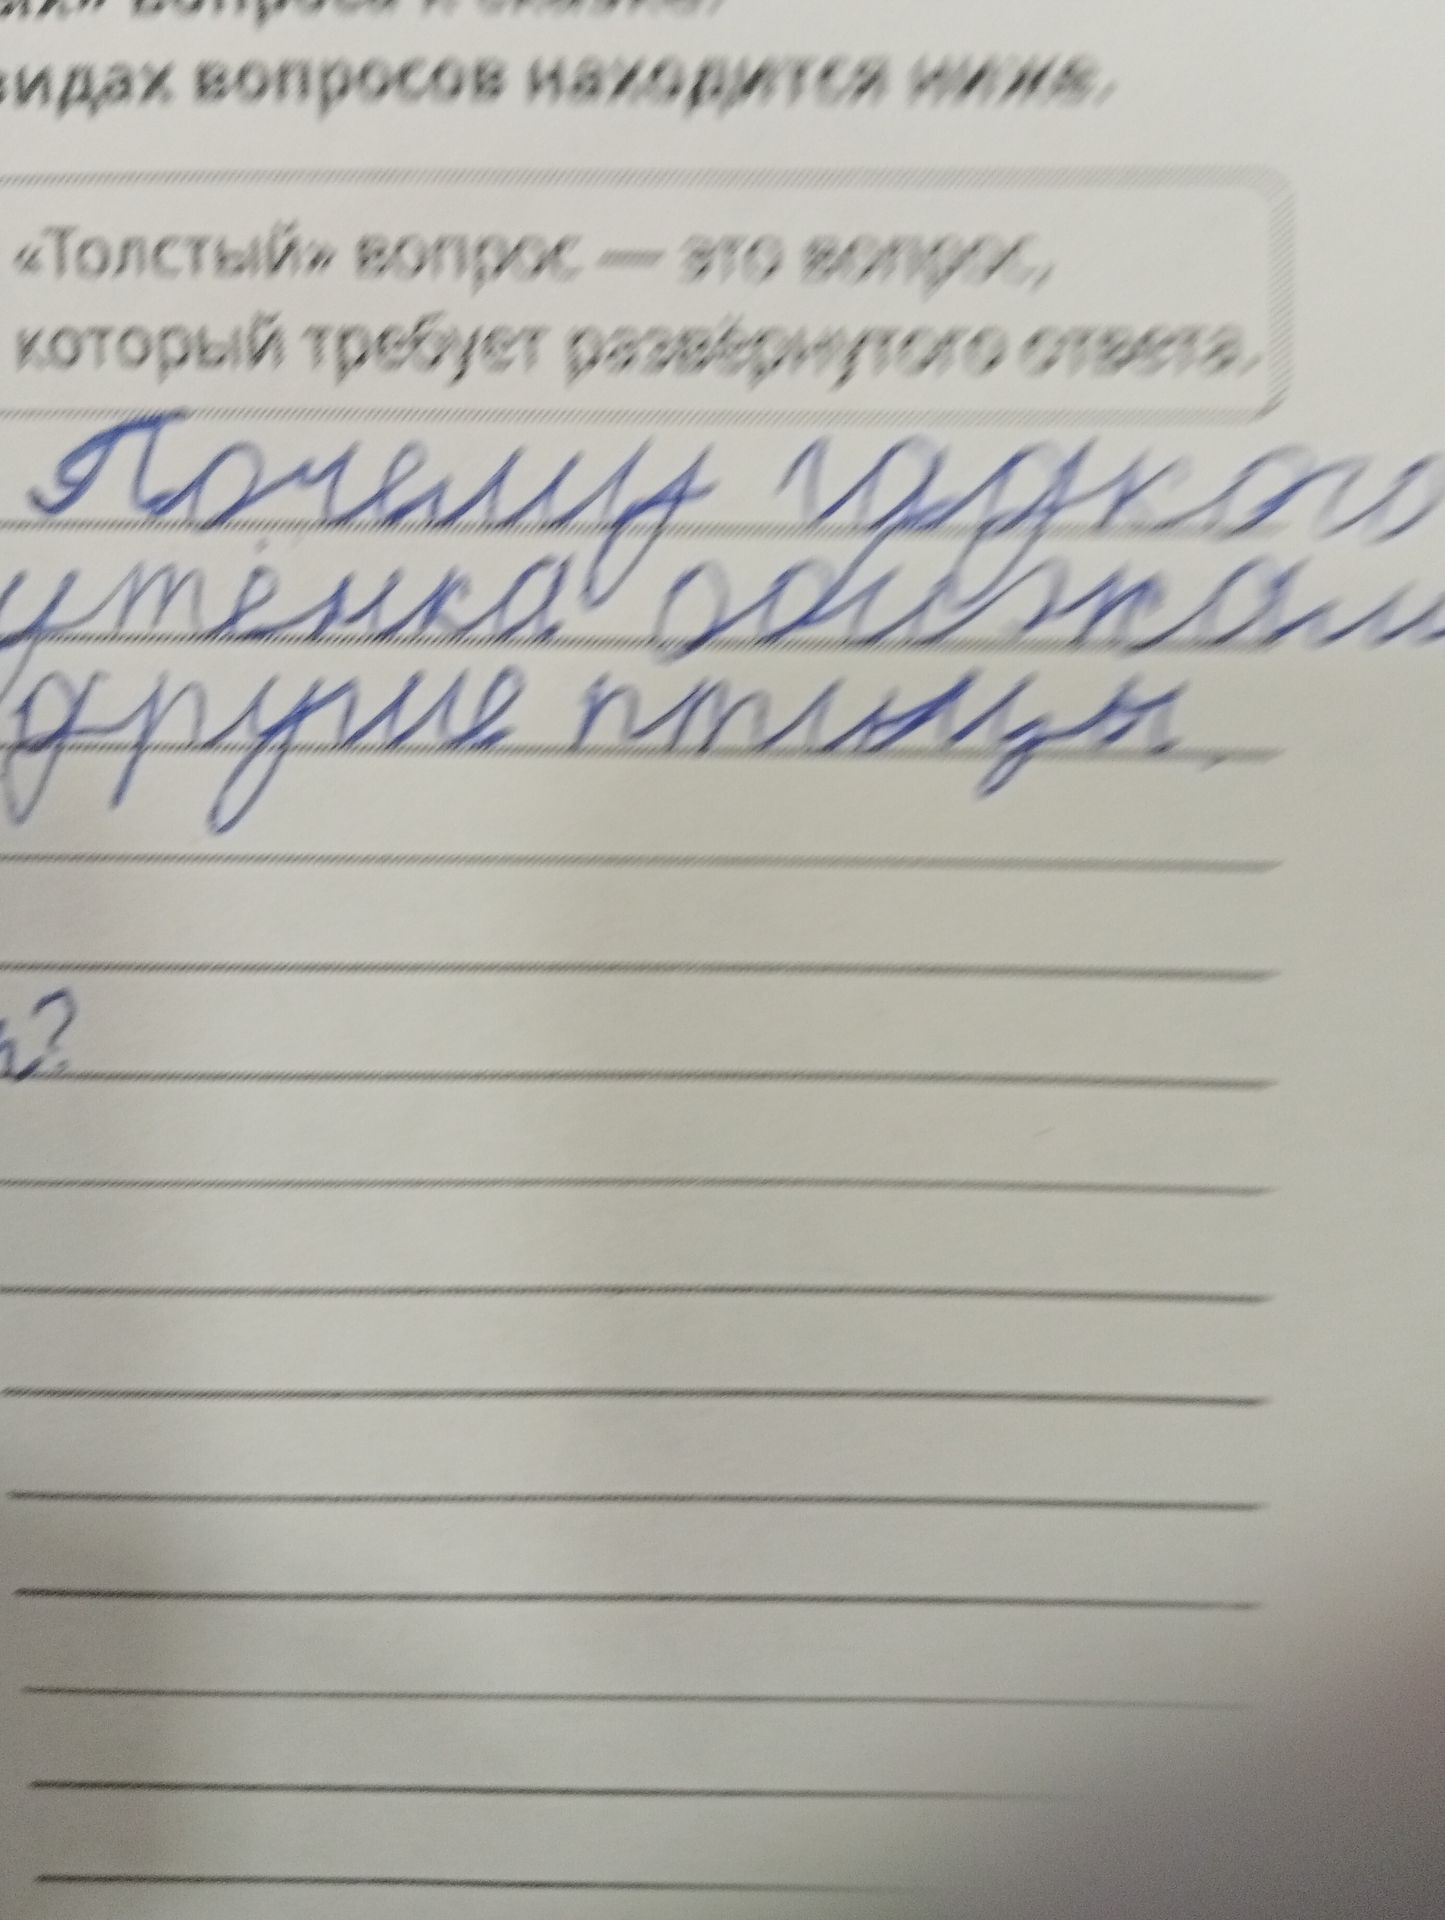 вопроса к сказке.
видах вопросов находится ниже.
«Толстый» вопрос — это вопрос,
который требует развёрнутого ответа.
Почему гадкого
утёнка обижали
другие птицы.
?